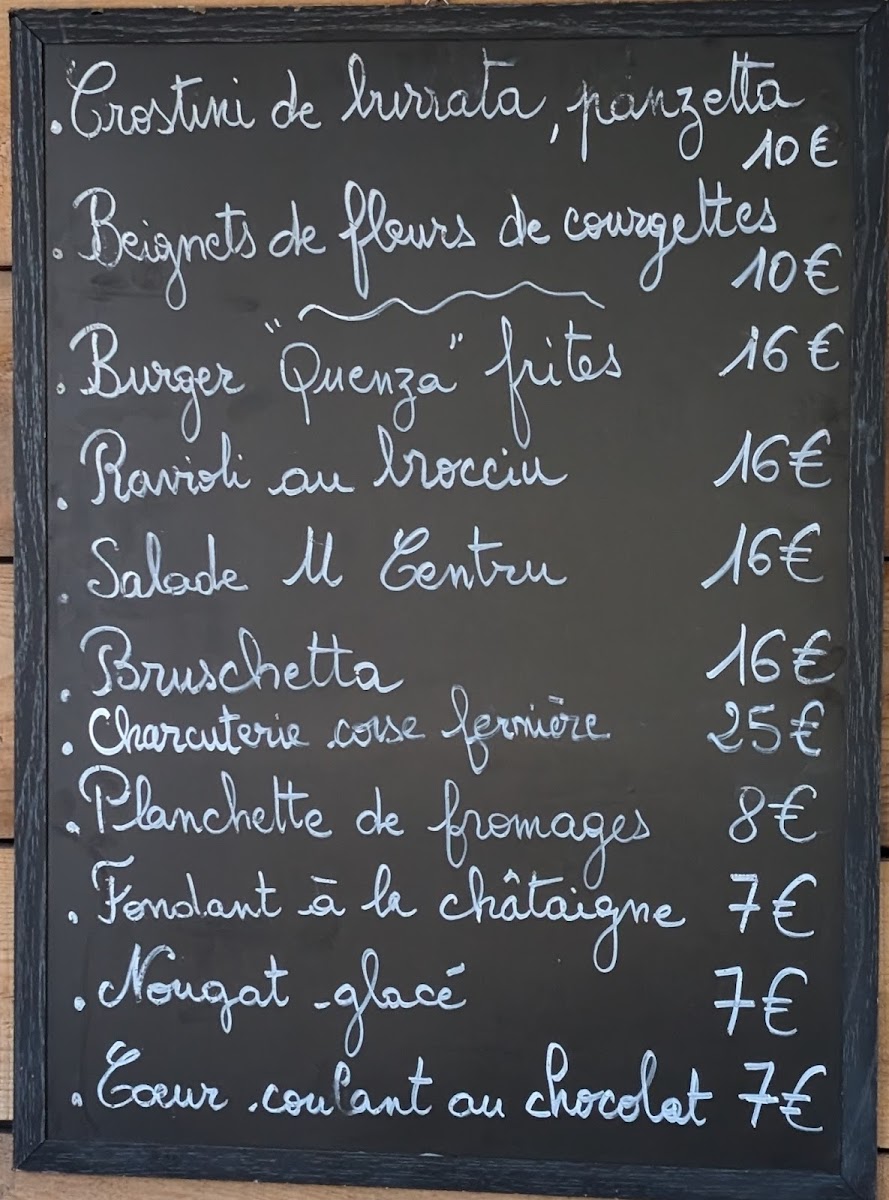 . Crostini de burrata, panzetta
10€
. Beignets de fleurs de courgettes
10€
. Burger "Quenza" frites 16€
. Ravioli au brocciu 16€
. Salade U Centru 16€
. Bruschetta 16€
. Charcuterie corse fermière 25€
. Planchette de fromages 8€
. Fondant à la châtaigne 7€
. Nougat glacé 7€
. Cœur coulant au chocolat 7€